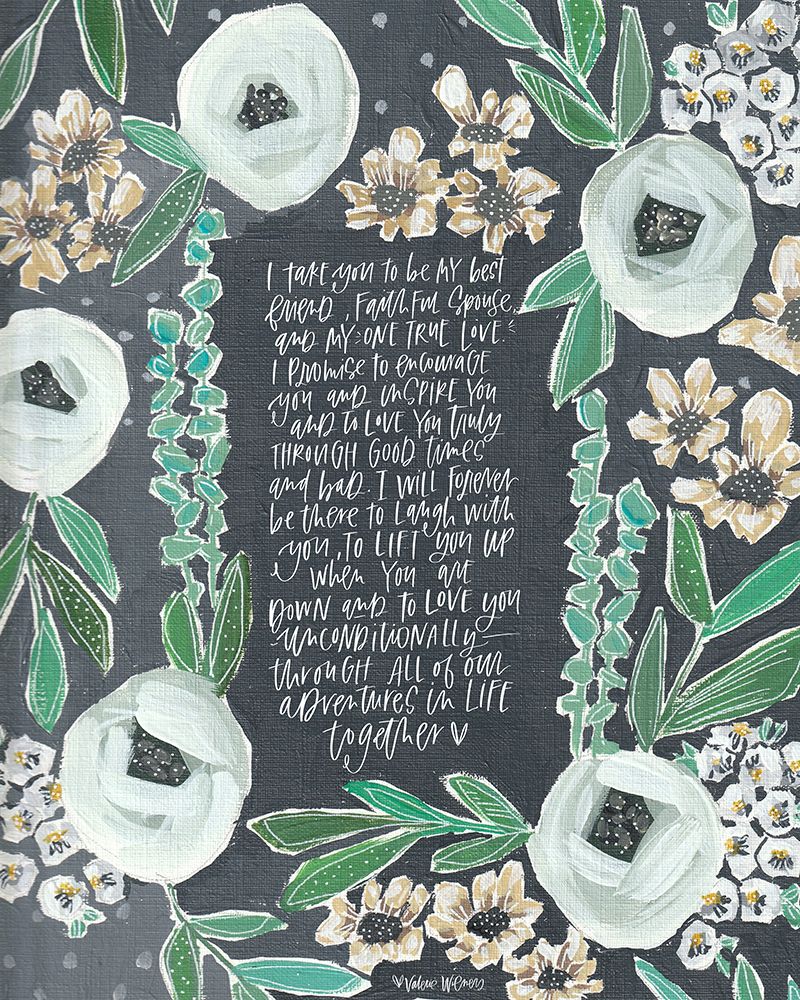 I take you to be my best
friend, faithful spouse,
and my one true love.
I promise to encourage
you and inspire you
and to love you truly
through good times
and bad. I will forever
be there to laugh with
you, to lift you up
when you are
down and to love you
unconditionally
through all of our
adventures in life
together ♡
♡Valerie Wieners